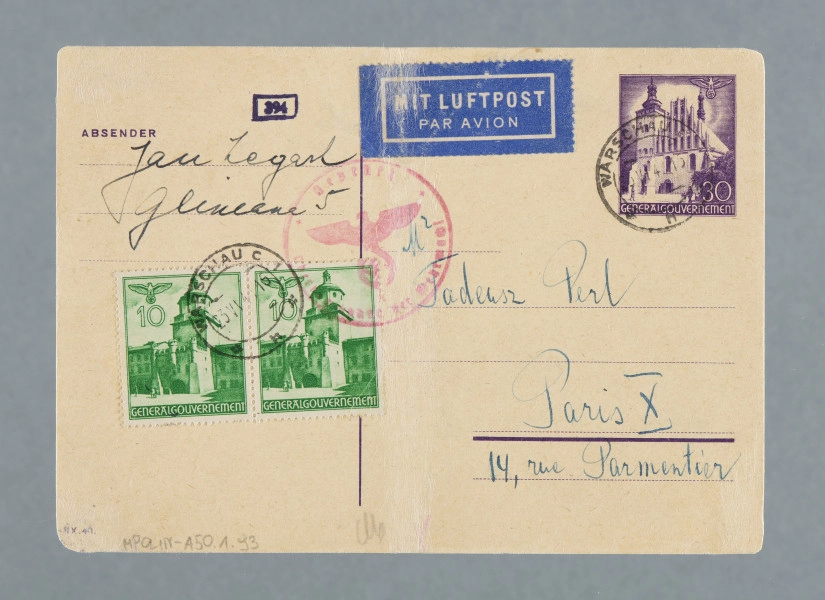 394
MIT LUFTPOST
PAR AVION
ABSENDER
Jan
5
30
GENERALGOUVERNEMENT
WARSCHAU
Geprüft
WARSCHAU C 1
10
10
GENERALGOUVERNEMENT
GENERALGOUVERNEMENT
Mr
Tadeusz Perl
Paris X
14, rue Parmentier
MPOLIN-A50.1.93